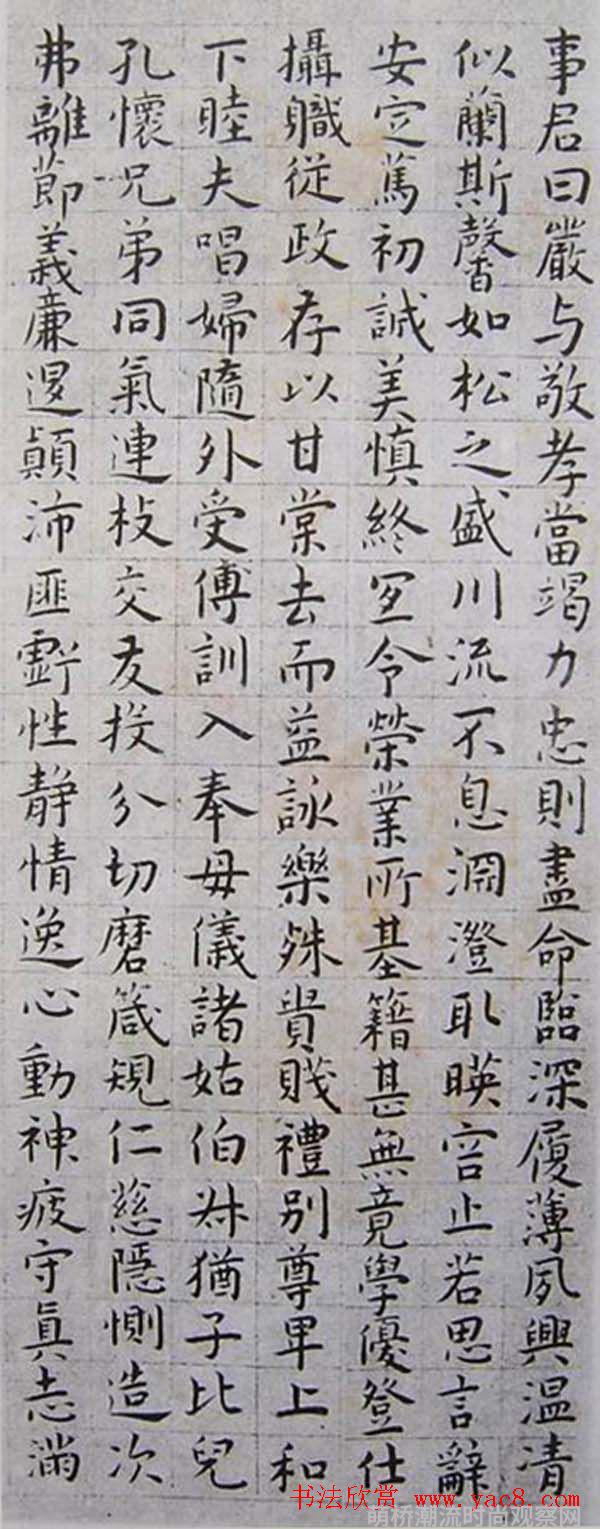 事君曰嚴与敬孝當竭力忠則盡命臨深履薄夙興温清
似蘭斯馨如松之盛川流不息渊澄取暎容止若思言辭
安定篤初誠美慎終宜令榮業所基籍甚無竟學優登仕
攝職從政存以甘棠去而益詠樂殊貴賤禮别尊卑上和
下睦夫唱婦隨外受傅訓入奉母儀諸姑伯叔猶子比兒
孔懷兄弟同氣連枝交友投分切磨箴規仁慈隱惻造次
弗離節義廉退顛沛匪虧性静情逸心動神疲守真志滿
书法欣赏 www.yac8.com
萌桥潮流时尚观察网